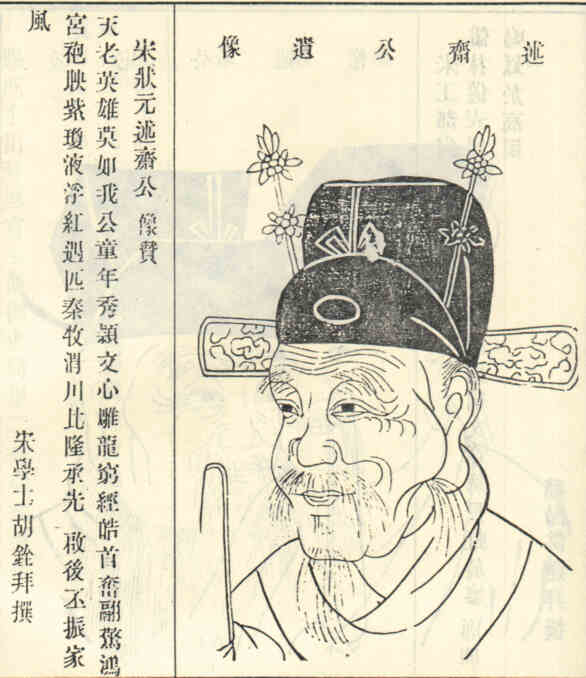 述齋公遺像
宋狀元述齋公 像贊
天老英雄莫如我公童年秀穎文心雕龍窮經皓首奮翮驚鴻
宮袍映紫瓊液浮紅遇匹秦牧渭川比隆承先啟後丕振家
風
宋學士胡銓拜撰